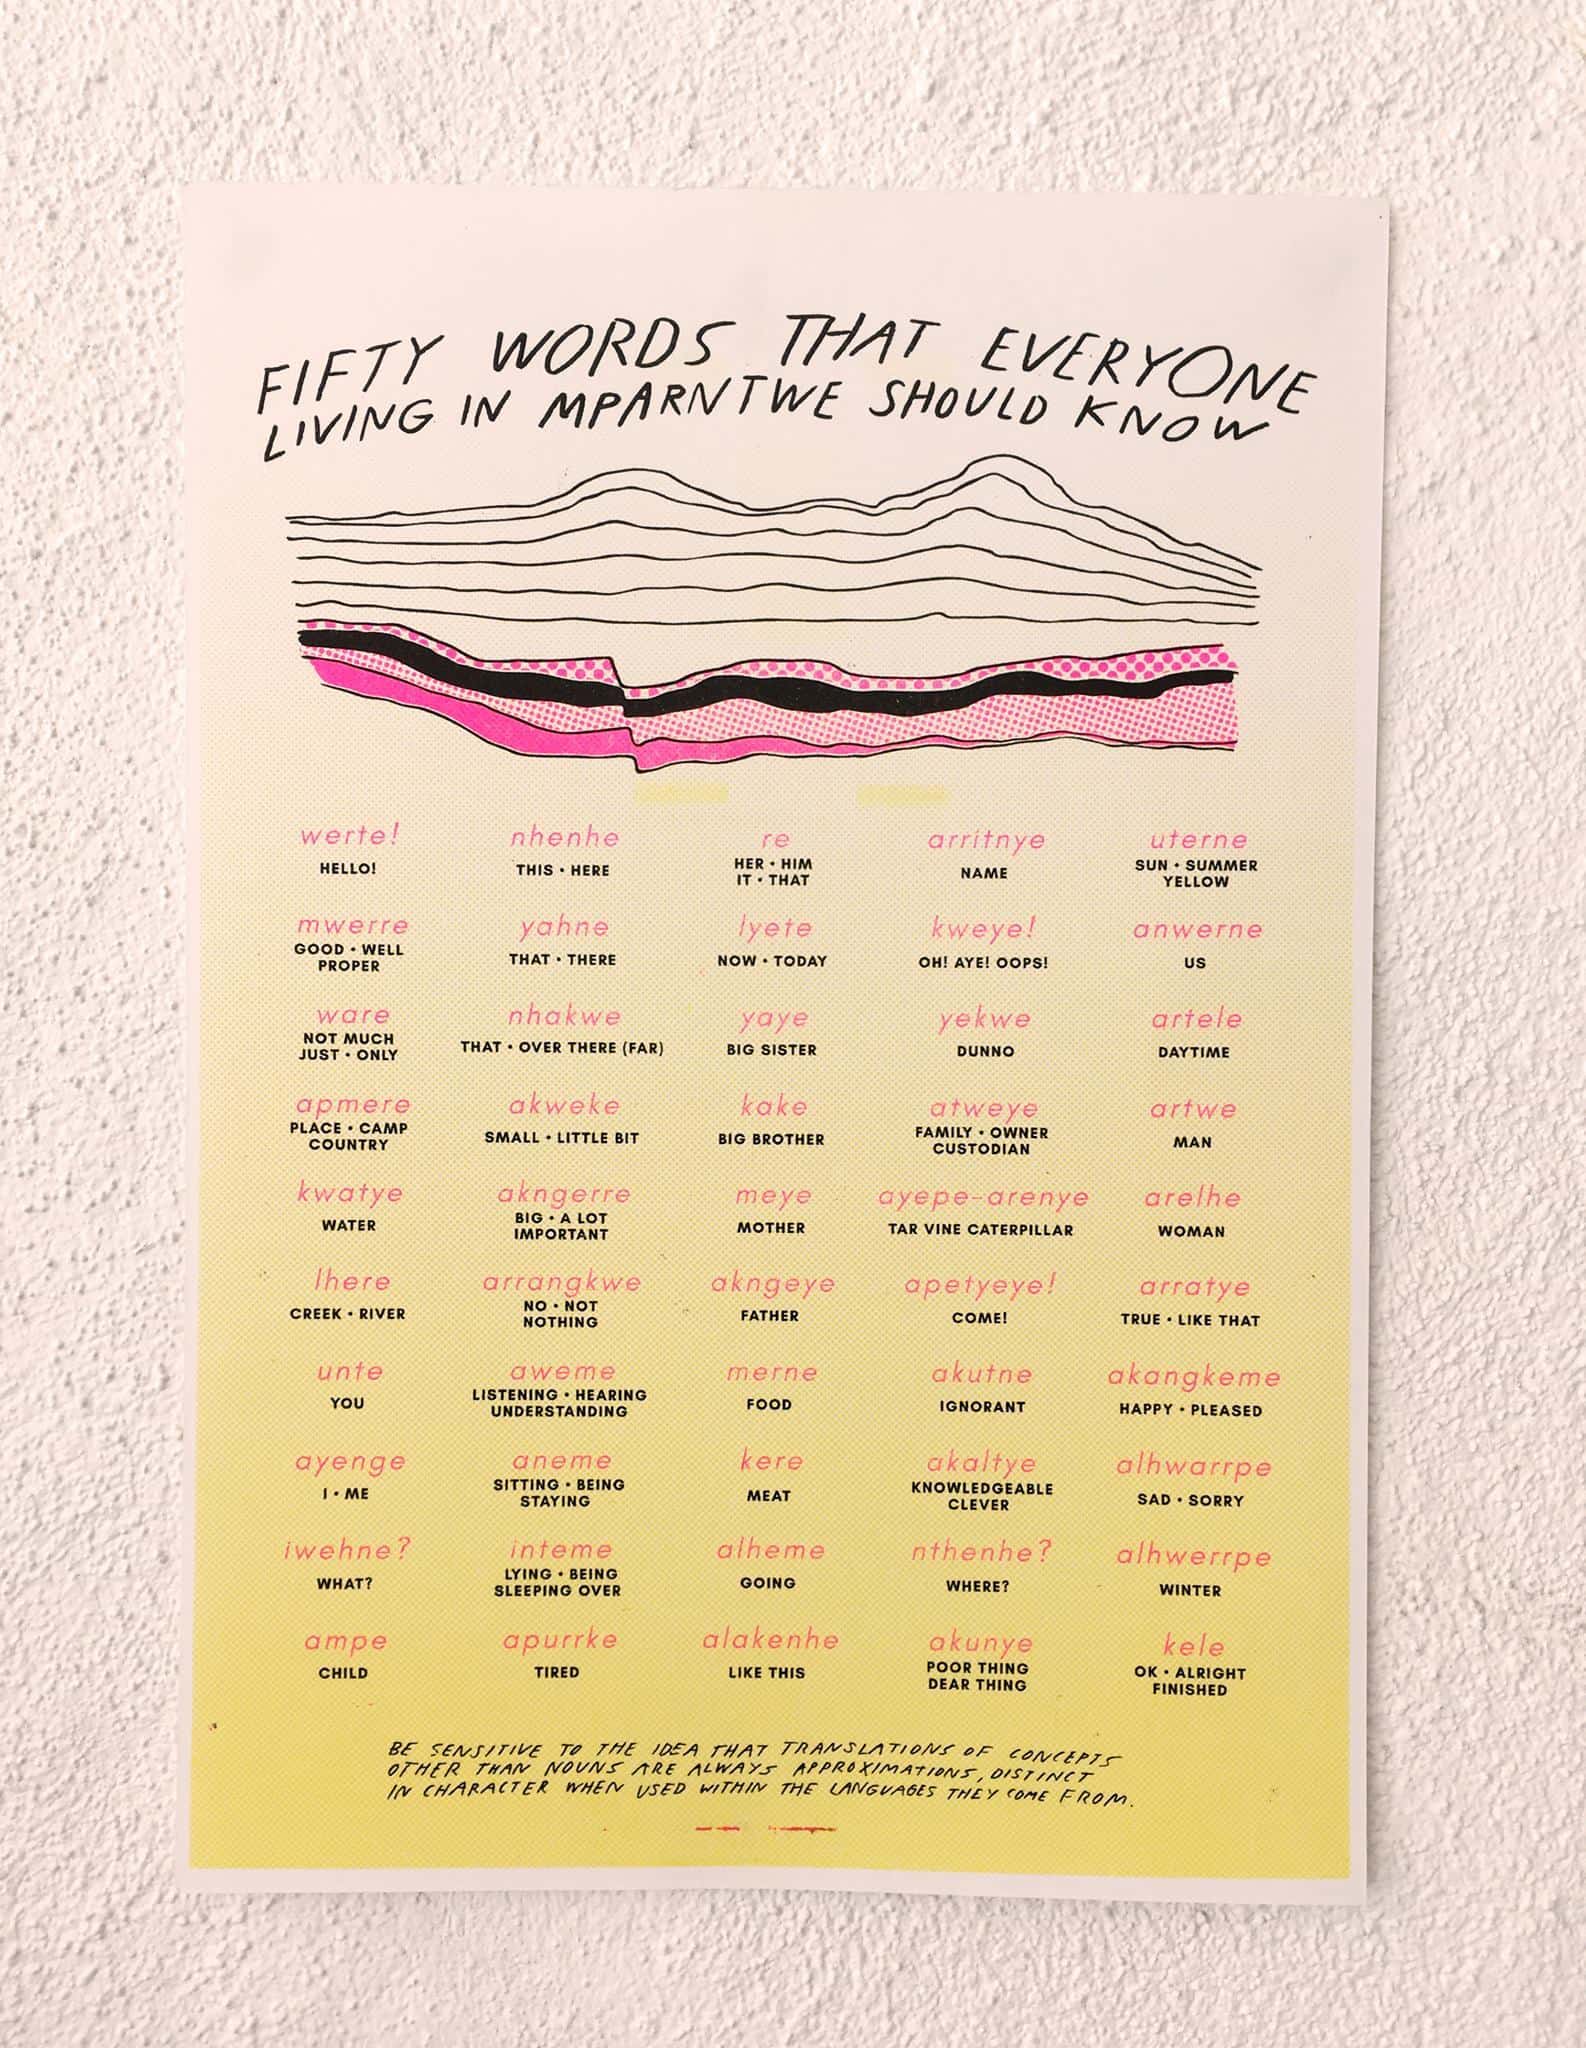 FIFTY WORDS THAT EVERYONE
LIVING IN MPARNTWE SHOULD KNOW
werte!
HELLO!
nhenhe
THIS • HERE
re
HER • HIM
IT • THAT
arritnye
NAME
uterne
SUN • SUMMER
YELLOW
mwerre
GOOD • WELL
PROPER
yahne
THAT • THERE
lyete
NOW • TODAY
kweye!
OH! AYE! OOPS!
anwerne
US
ware
NOT MUCH
JUST • ONLY
nhakwe
THAT • OVER THERE (FAR)
yaye
BIG SISTER
yekwe
DUNNO
artele
DAYTIME
apmere
PLACE • CAMP
COUNTRY
akweke
SMALL • LITTLE BIT
kake
BIG BROTHER
atweye
FAMILY • OWNER
CUSTODIAN
artwe
MAN
kwatye
WATER
akngerre
BIG • A LOT
IMPORTANT
meye
MOTHER
ayepe-arenye
TAR VINE CATERPILLAR
arelhe
WOMAN
lhere
CREEK • RIVER
arrangkwe
NO • NOT
NOTHING
akngeye
FATHER
apetyeye!
COME!
arratye
TRUE • LIKE THAT
unte
YOU
aweme
LISTENING • HEARING
UNDERSTANDING
merne
FOOD
akutne
IGNORANT
akangkeme
HAPPY • PLEASED
ayenge
I • ME
aneme
SITTING • BEING
STAYING
kere
MEAT
akaltye
KNOWLEDGEABLE
CLEVER
alhwarrpe
SAD • SORRY
iwehne?
WHAT?
inteme
LYING • BEING
SLEEPING OVER
alheme
GOING
nthenhe?
WHERE?
alhwerrpe
WINTER
ampe
CHILD
apurrke
TIRED
alakenhe
LIKE THIS
akunye
POOR THING
DEAR THING
kele
OK • ALRIGHT
FINISHED
BE SENSITIVE TO THE IDEA THAT TRANSLATIONS OF CONCEPTS
OTHER THAN NOUNS ARE ALWAYS APPROXIMATIONS, DISTINCT
IN CHARACTER WHEN USED WITHIN THE LANGUAGES THEY COME FROM.